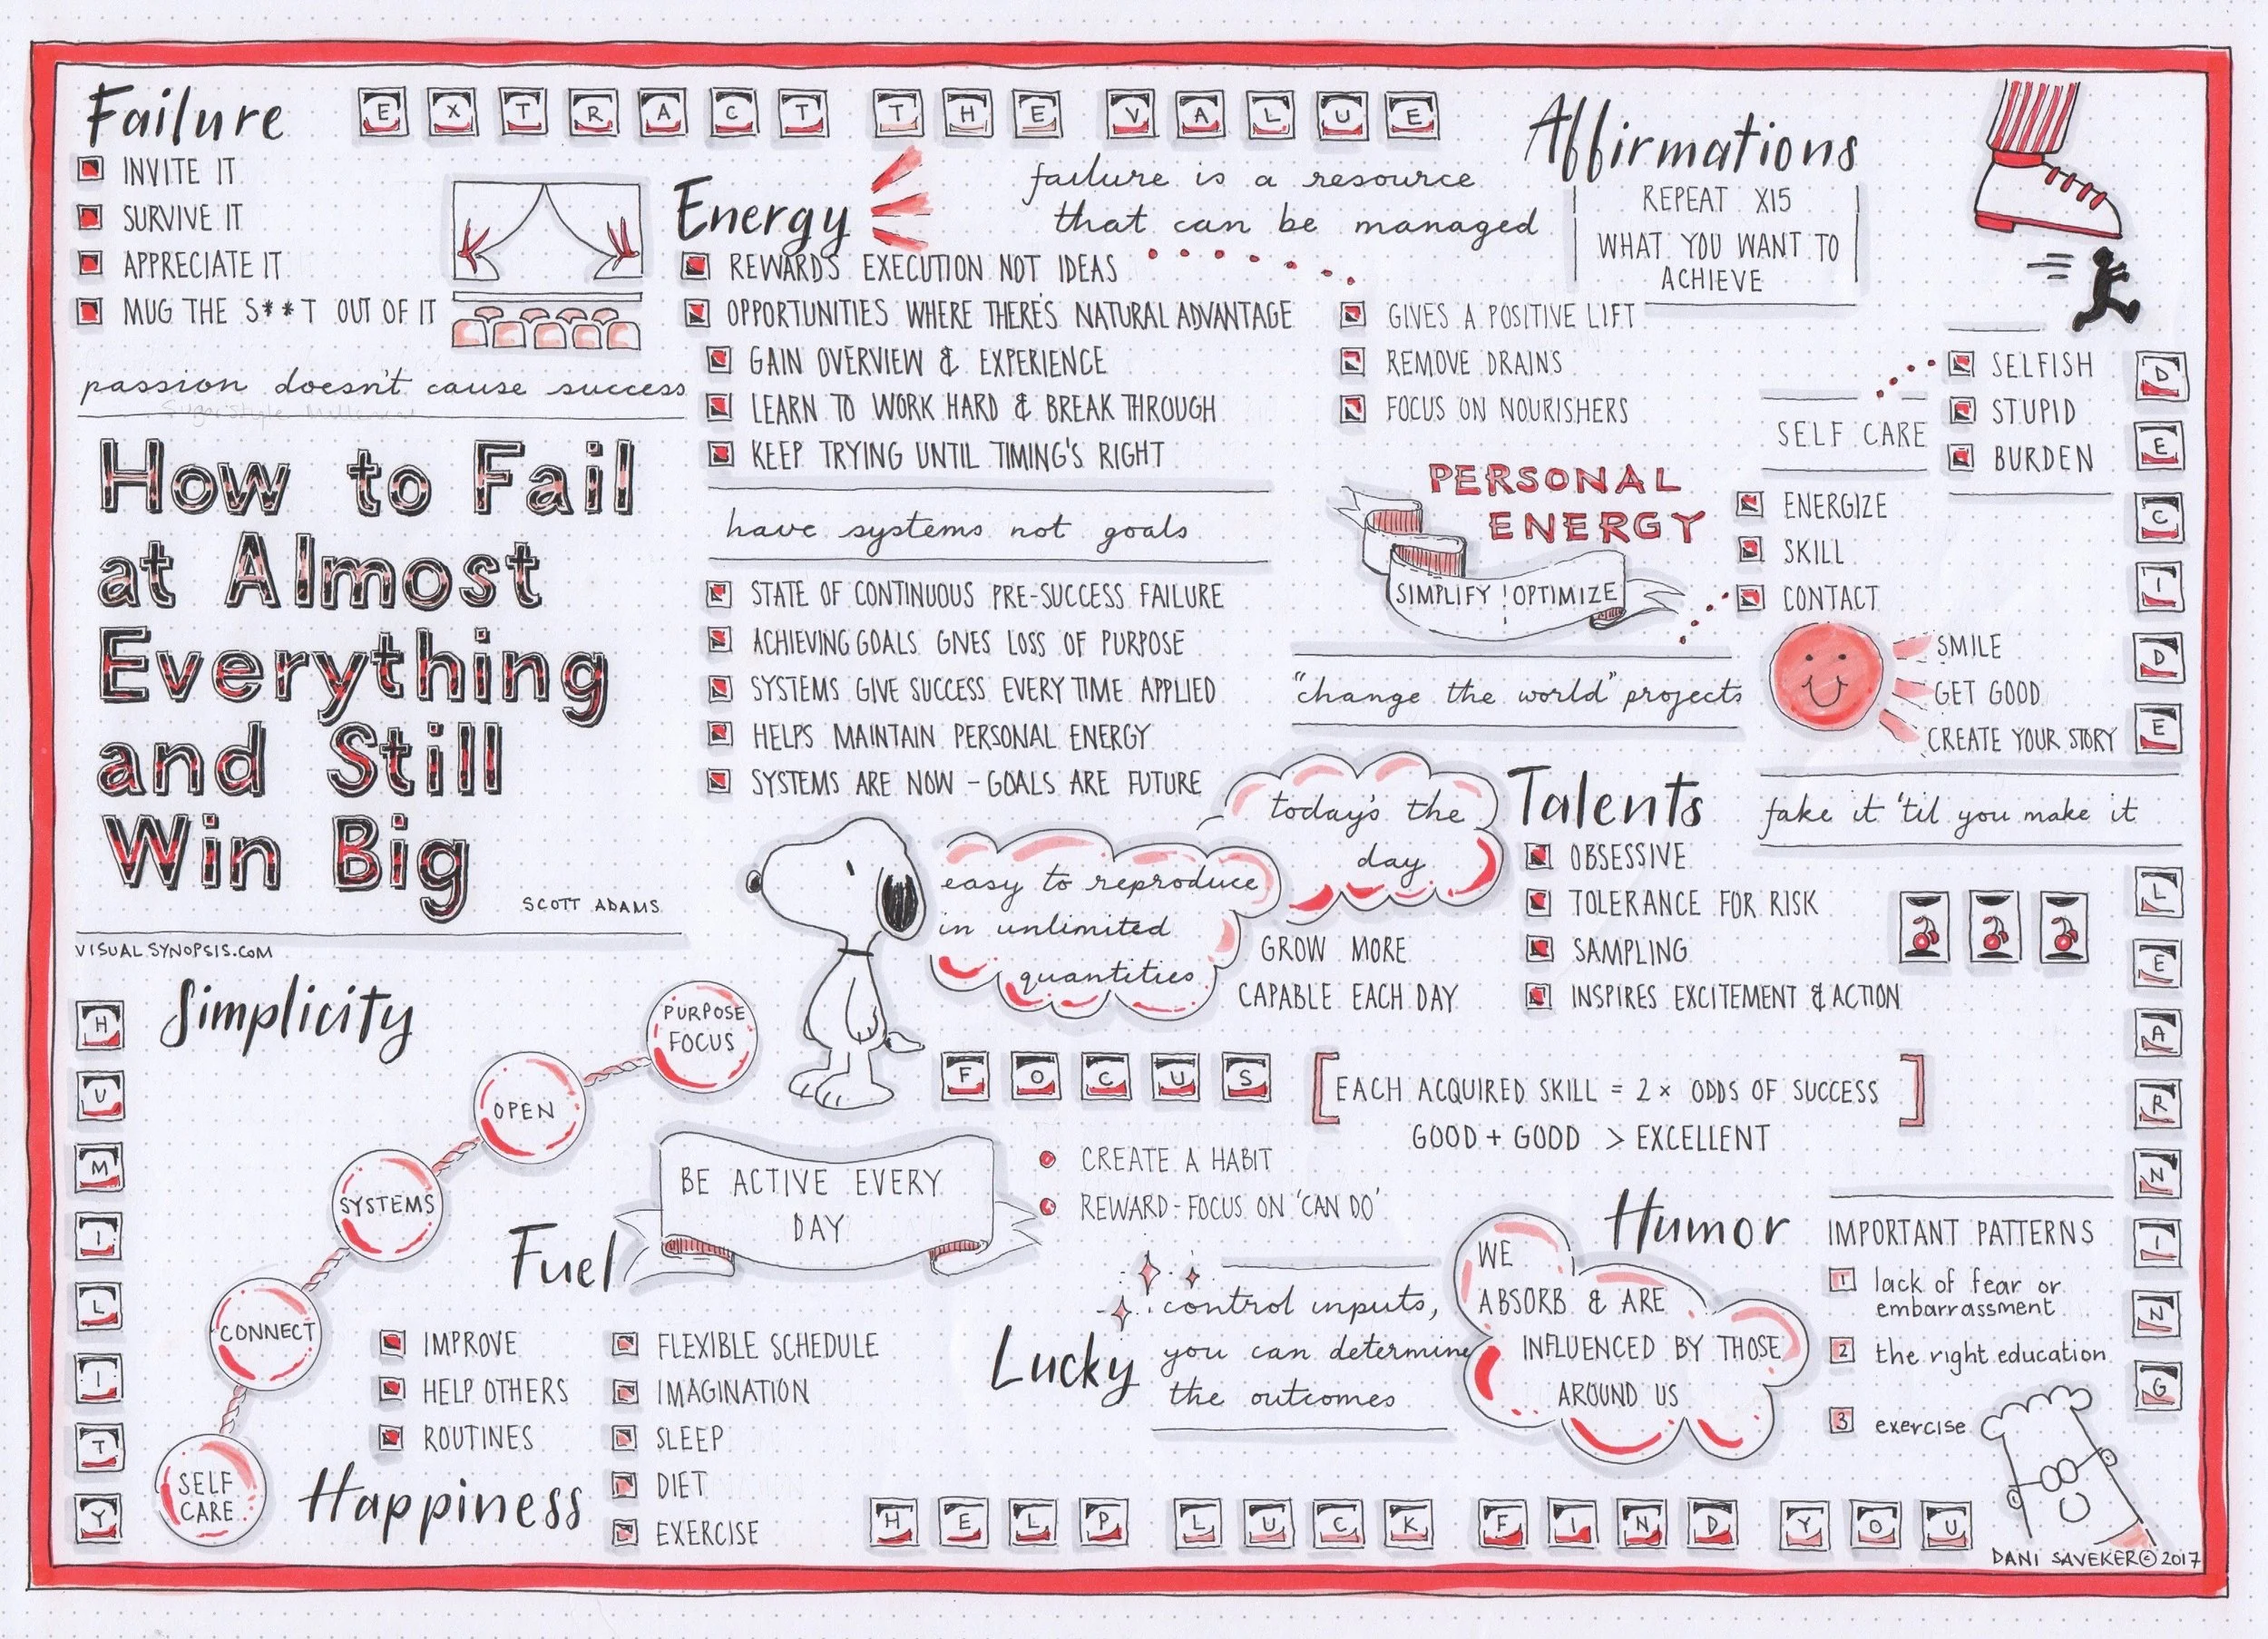 Failure
INVITE IT
SURVIVE IT
APPRECIATE IT
MUG THE S**T OUT OF IT
passion doesn't cause success
EXTRACT THE VALUE
failure is a resource
that can be managed
Energy
REWARDS EXECUTION NOT IDEAS
OPPORTUNITIES WHERE THERE'S NATURAL ADVANTAGE
GAIN OVERVIEW & EXPERIENCE
LEARN TO WORK HARD & BREAK THROUGH
KEEP TRYING UNTIL TIMING'S RIGHT
have systems not goals
STATE OF CONTINUOUS PRE-SUCCESS FAILURE
ACHIEVING GOALS GIVES LOSS OF PURPOSE
SYSTEMS GIVE SUCCESS EVERY TIME APPLIED
HELPS MAINTAIN PERSONAL ENERGY
SYSTEMS ARE NOW - GOALS ARE FUTURE
Affirmations
REPEAT X15
WHAT YOU WANT TO
ACHIEVE
GIVES A POSITIVE LIFT
REMOVE DRAINS
FOCUS ON NOURISHERS
PERSONAL
ENERGY
SIMPLIFY ! OPTIMIZE
"change the world" projects
SELF CARE
SELFISH
STUPID
BURDEN
ENERGIZE
SKILL
CONTACT
SMILE
GET GOOD
CREATE YOUR STORY
fake it 'til you make it
DECIDE
LEARNING
How to Fail
at Almost
Everything
and Still
Win Big
SCOTT ADAMS
VISUALSYNOPSIS.COM
easy to reproduce
in unlimited
quantities
today's the
day
GROW MORE
CAPABLE EACH DAY
Talents
OBSESSIVE
TOLERANCE FOR RISK
SAMPLING
INSPIRES EXCITEMENT & ACTION
FOCUS
EACH ACQUIRED SKILL = 2x ODDS OF SUCCESS
GOOD + GOOD > EXCELLENT
HUMILITY
Simplicity
PURPOSE
FOCUS
OPEN
SYSTEMS
CONNECT
SELF
CARE
Fuel
BE ACTIVE EVERY
DAY
CREATE A HABIT
REWARD - FOCUS ON 'CAN DO'
IMPROVE
HELP OTHERS
ROUTINES
Happiness
FLEXIBLE SCHEDULE
IMAGINATION
SLEEP
DIET
EXERCISE
Lucky
control inputs,
you can determine
the outcomes
Humor
WE
ABSORB & ARE
INFLUENCED BY THOSE
AROUND US
IMPORTANT PATTERNS
1 lack of fear or
embarrassment
2 the right education
3 exercise
HELP LUCK FIND YOU
DANI SAVEKER © 2017